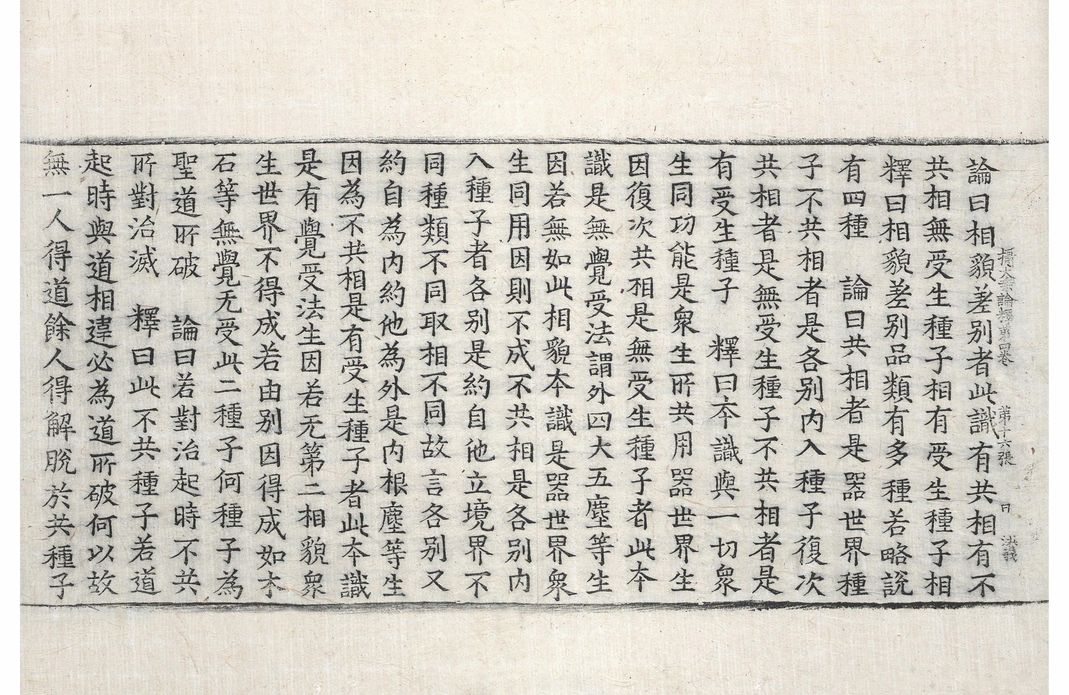 攝大乘論釋第四卷 第十六張 日
論曰相貌差別者此識有共相有不
共相無受生種子相有受生種子相
釋曰相貌差別品類有多種若略說
有四種 論曰共相者是器世界種
子不共相者是各別內入種子復次
共相者是無受生種子不共相者是
有受生種子 釋曰夲識與一切衆
生同功能是衆生所共用器世界生
因復次共相是無受生種子者此夲
識是無覺受法謂外四大五塵等生
因若無如此相貌夲識是器世界衆
生同用因則不成不共相是各別內
入種子者各別是約自他立境界不
同種類不同取相不同故言各別又
約自為內約他為外是內根塵等生
因為不共相是有受生種子者此夲識
是有覺受法生因若无第二相貌衆
生世界不得成若由別因得成如木
石等無覺无受此二種子何種子為
聖道所破 論曰若對治起時不共
所對治滅 釋曰此不共種子若道
起時與道相違必為道所破何以故
無一人得道餘人得解脫於共種子